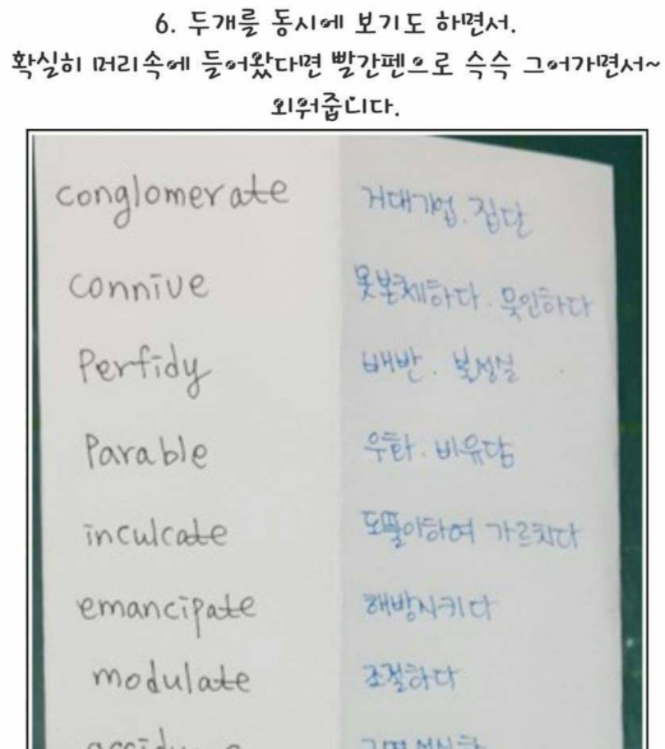 6. 두개를 동시에 보기도 하면서.
확실히 머리속에 들어왔다면 빨간펜으로 슥슥 그어가면서~
외워줍니다.
conglomerate 거대기업. 집단
connive 못본체하다. 묵인하다
Perfidy 배반. 불성실
Parable 우화. 비유담
inculcate 되풀이하여 가르치다
emancipate 해방시키다
modulate 조절하다